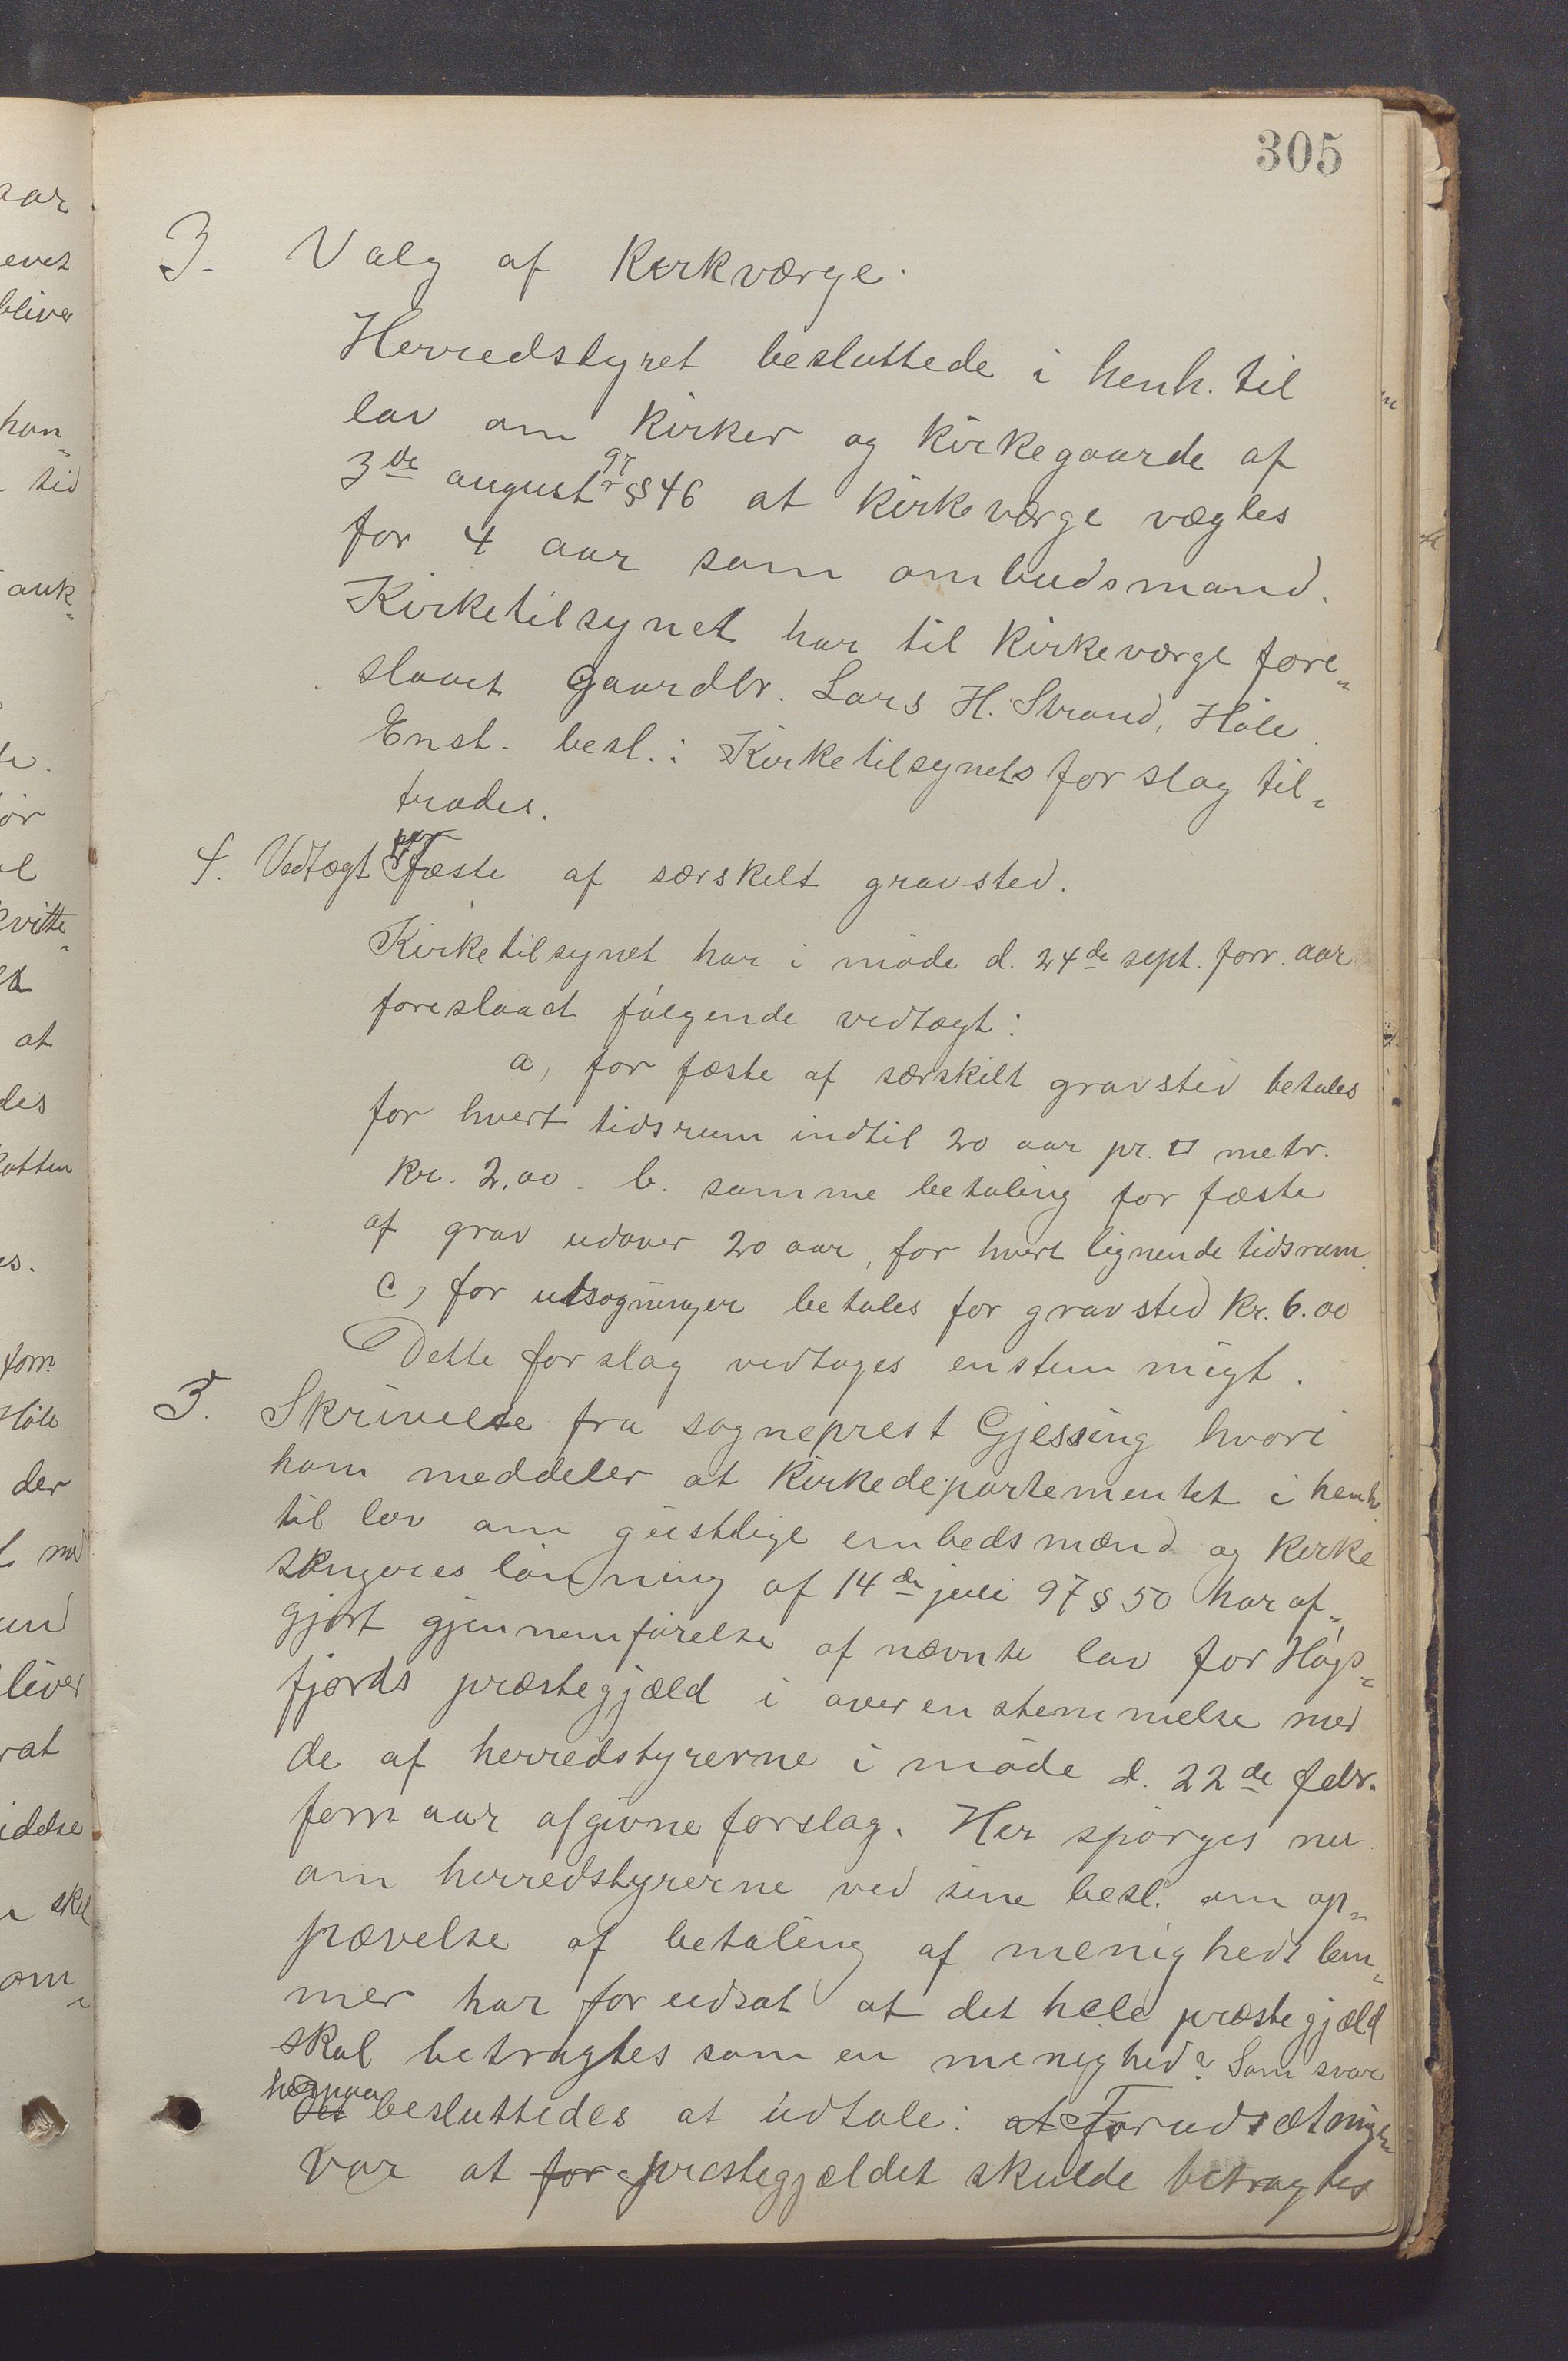 305
3. Valg af Kirkværge.
Herredstyret besluttede i henh. til
lov om Kirker og Kirkegaarde af
3de august 97 § 46 at Kirkeværge vægles
for 4 aar som ombudsmand.
Kirketilsynet har til Kirkeværge fore-
slaaet Gaardbr. Lars H. Strand, Høle.
Enst. besl.: Kirketilsynets forslag til-
trædes.
4. Vedtægt for Fæste af særskelt gravsted.
Kirketilsynet har i møde d. 24de sept. forr. aar
foreslaaet følgende vedtægt:
a, for fæste af særskilt gravsted betales
for hvert tidsrum indtil 20 aar pr. □ metr.
Kr. 2.00. b. samme betaling for fæste
af grav udover 20 aar, for hvert lignende tidsrum.
c, for udsogninger betales for gravsted Kr. 6.00
Dette forslag vedtages enstemmigt.
5. Skrivelse fra sogneprest Gjessing hvori
ham meddeler at Kirkedepartementet i henh
til lov om geistlige embedsmænd og Kirke
sangeres lønning af 14de juli 97 § 50 har af-
gjort gjennemførelse af nævnte lov for Høgs-
fjords præstegjæld i overenstemmelse med
de af herredstyrerne i møde d. 22de febr.
forr. aar afgivne forslag. Her spørges nu
om herredstyrerne ved sine besl. om op-
hævelse af betaling af menigheds lem-
mer har forudsat at det hele præstegjæld
skal betragtes som en menighed? Som svar
herpaa det besluttedes at udtale: at Forudsætningen
var at for præstegjældet skulde betragtes